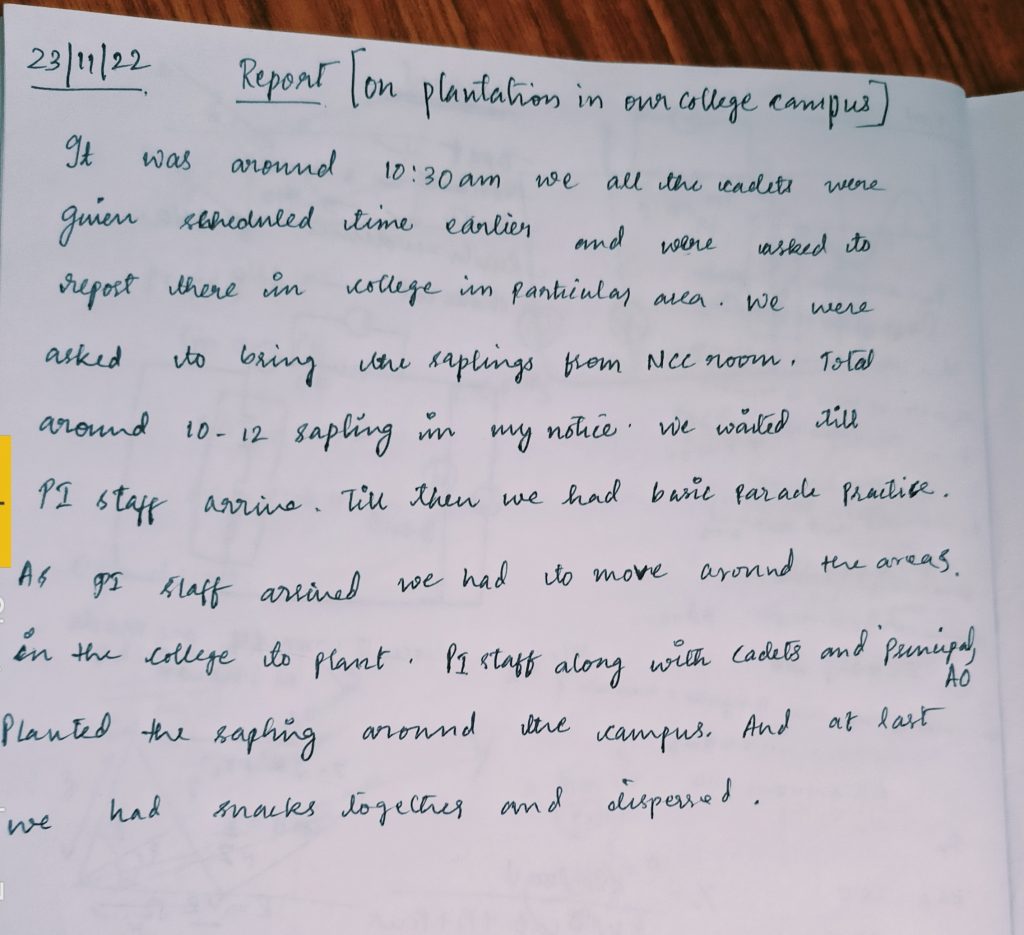 23/11/22 Report [on plantation in our college campus]
It was around 10:30am we all the cadets were
given scheduled time earlier and were asked to
report there in college in particular area. We were
asked to bring the saplings from NCC room. Total
around 10-12 sapling in my notice. We waited till
PI staff arrive. Till then we had basic parade practice.
As PI staff arrived we had to move around the areas.
in the college to plant. PI staff along with cadets and principal,
AO
Planted the sapling around the campus. And at last
we had snacks together and dispersed.